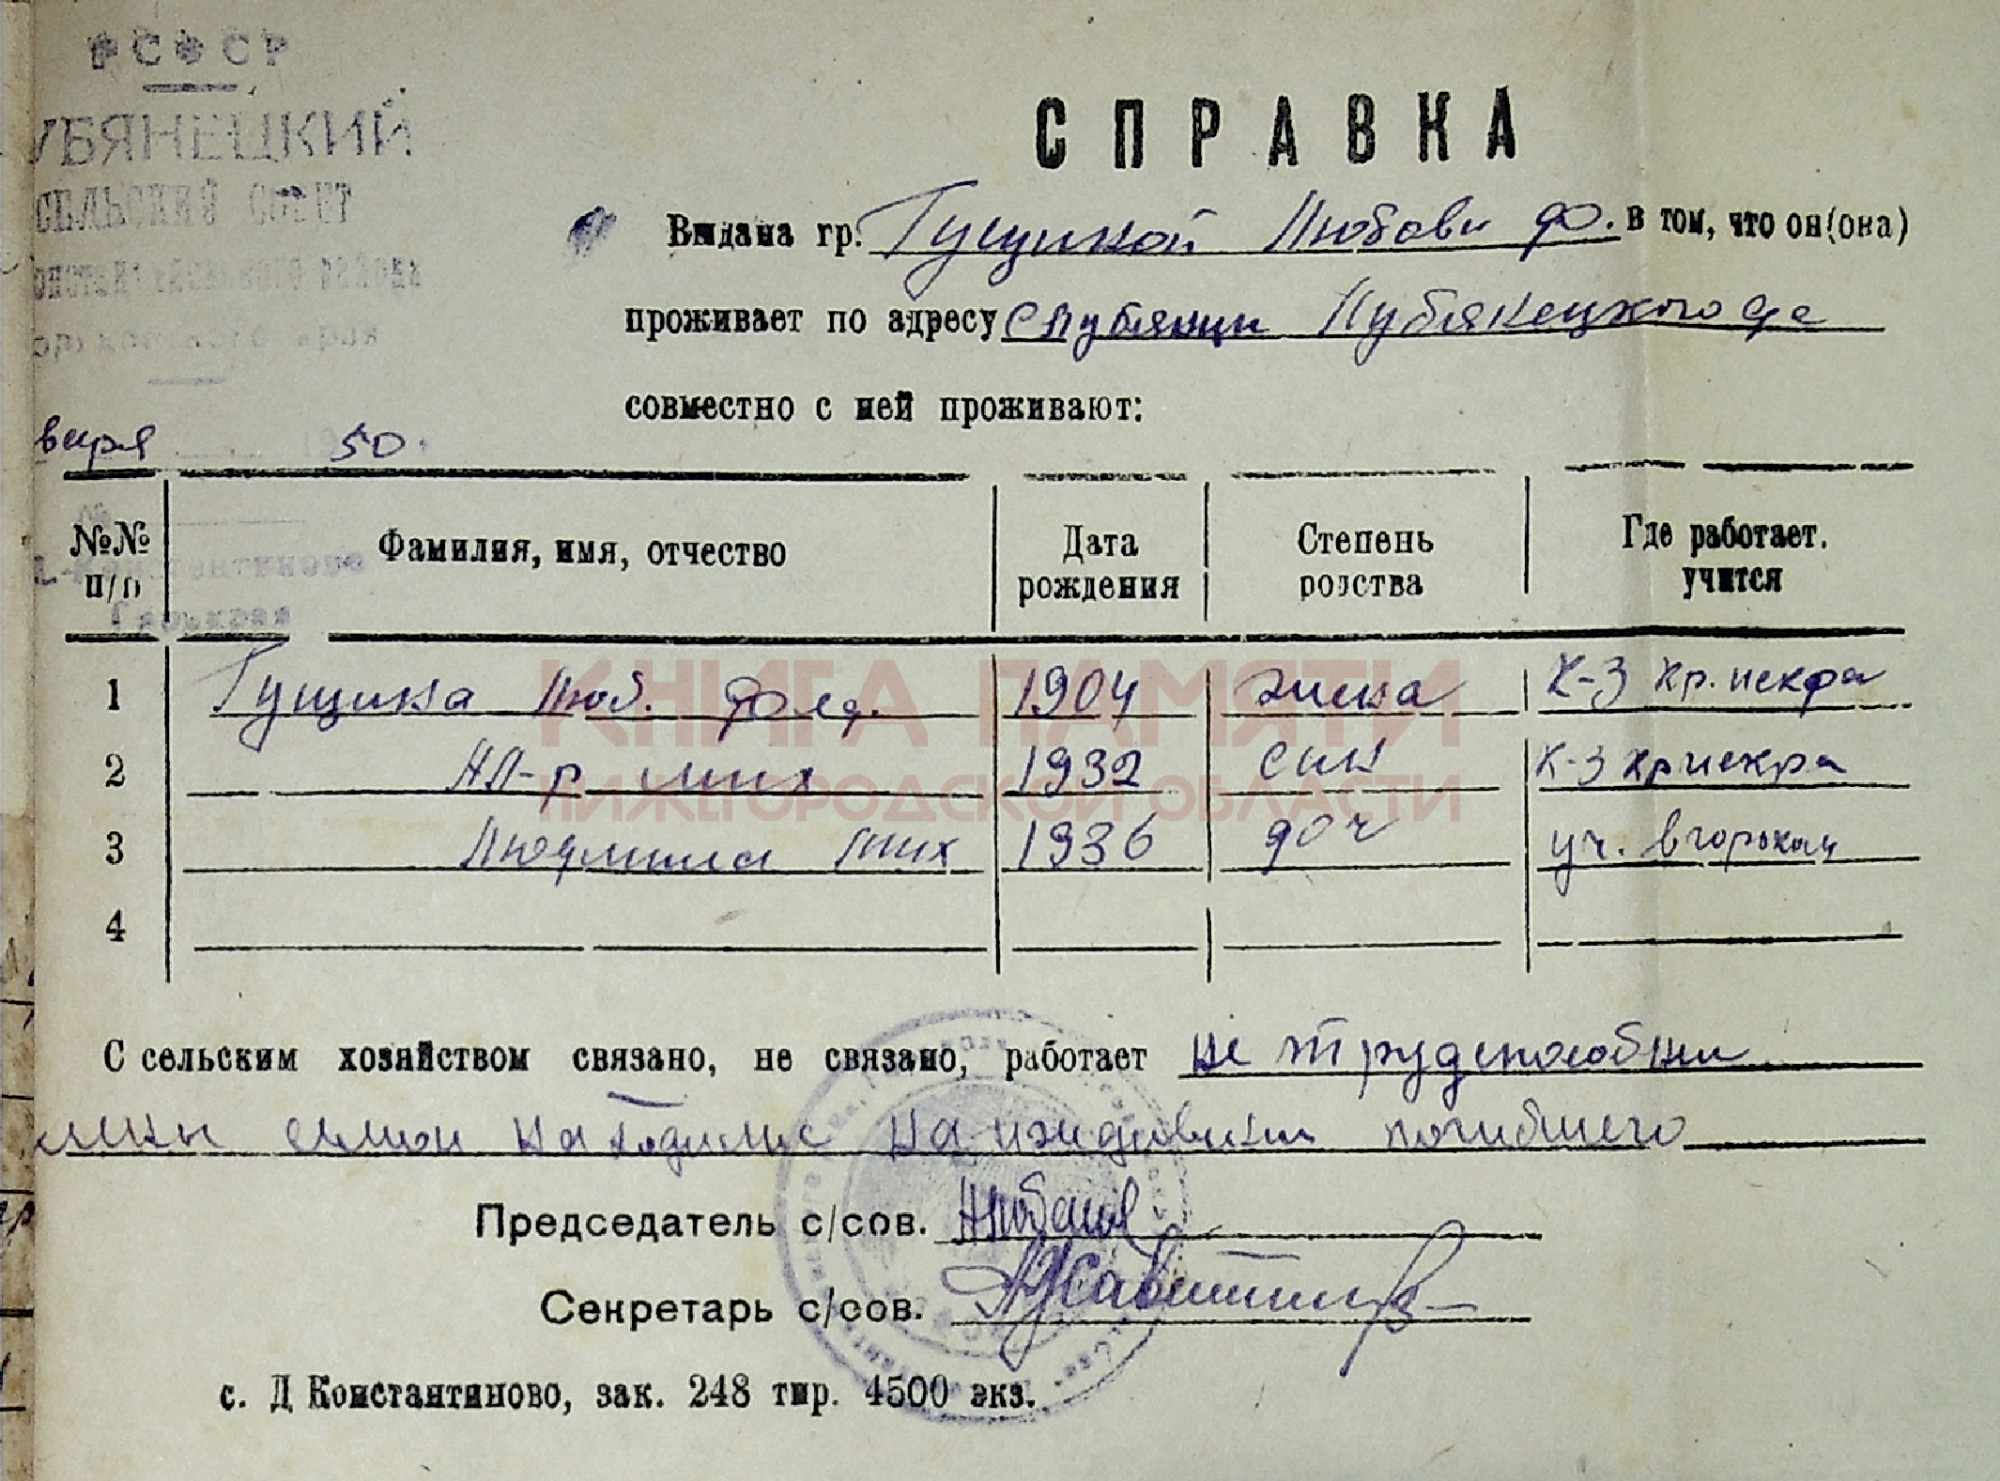 РСФСР
УБЯНЕЦКИЙ
СЕЛЬСКИЙ СОВЕТ
СПРАВКА
Выдана гр. Гущиной Любови Ф. в том, что он(она)
проживает по адресу с Лубянцы Лубянецкого с/с
совместно с ней проживают:
варя 50.
№№ п/п Фамилия, имя, отчество Дата рождения Степень родства Где работает. учится
1 Гущина Люб. Фед. 1904 жена к-з кр. искра
2 Ал-р мих 1932 сын к-з кр искра
3 Людмила мих 1936 доч уч. в горьком
4
КНИГА ПАМЯТИ
НИЖЕГОРОДСКОЙ ОБЛАСТИ
С сельским хозяйством связано, не связано, работает не трудспособны
члены семьи находились на иждивении погибшего
Председатель с/сов.
Секретарь с/сов.
с. Д Константиново, зак. 248 тир. 4500 экз.